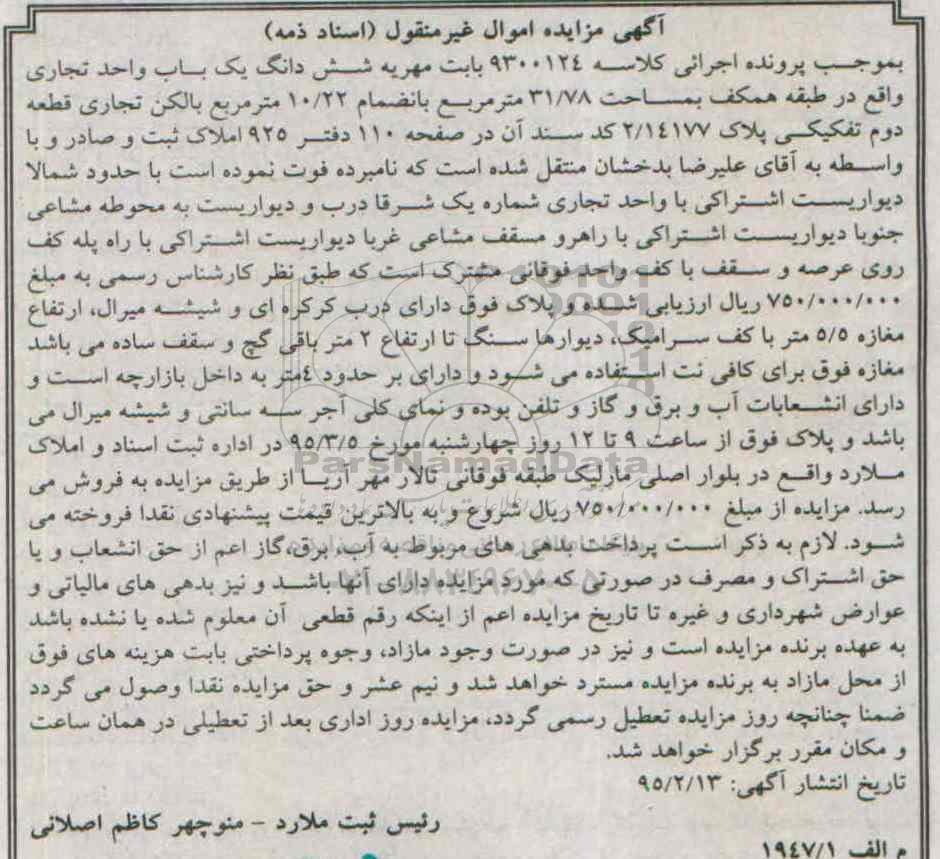 آگهی مزایده اموال غیرمنقول (اسناد ذمه)
بموجب پرونده اجرائی کلاسه ٩٣٠٠١٢٤ بابت مهریه شش دانگ یک باب واحد تجاری
واقع در طبقه همکف بمساحت ٣١/٧٨ مترمربع بانضمام ١٠/٢٢ مترمربع بالکن تجاری قطعه
دوم تفکیکی پلاک ٢/١٤١٧٧ کد سند آن در صفحه ١١٠ دفتر ٩٢٥ املاک ثبت و صادر و با
واسطه به آقای علیرضا بدخشان منتقل شده است که نامبرده فوت نموده است با حدود شمالا
دیواریست اشتراکی با واحد تجاری شماره یک شرقا درب و دیواریست به محوطه مشاعی
جنوبا دیواریست اشتراکی با راهرو مسقف مشاعی غربا دیواریست اشتراکی با راه پله کف
روی عرصه و سقف با کف واحد فوقانی مشترک است که طبق نظر کارشناس رسمی به مبلغ
٧٥٠/٠٠٠/٠٠٠ ریال ارزیابی شده و پلاک فوق دارای درب کرکره ای و شیشه میرال، ارتفاع
مغازه ٥/٥ متر با کف سرامیک، دیوارها سنگ تا ارتفاع ٢ متر باقی گچ و سقف ساده می باشد
مغازه فوق برای کافی نت استفاده می شود و دارای بر حدود ٤متر به داخل بازارچه است و
دارای انشعابات آب و برق و گاز و تلفن بوده و نمای کلی آجر سه سانتی و شیشه میرال می
باشد و پلاک فوق از ساعت ٩ تا ١٢ روز چهارشنبه مورخ ٩٥/٣/٥ در اداره ثبت اسناد و املاک
ملارد واقع در بلوار اصلی مارلیک طبقه فوقانی تالار مهر آریا از طریق مزایده به فروش می
رسد. مزایده از مبلغ ٧٥٠/٠٠٠/٠٠٠ ریال شروع و به بالاترین قیمت پیشنهادی نقدا فروخته می
شود. لازم به ذکر است پرداخت بدهی های مربوط به آب، برق،گاز اعم از حق انشعاب و یا
حق اشتراک و مصرف در صورتی که مورد مزایده دارای آنها باشد و نیز بدهی های مالیاتی و
عوارض شهرداری و غیره تا تاریخ مزایده اعم از اینکه رقم قطعی آن معلوم شده یا نشده باشد
به عهده برنده مزایده است و نیز در صورت وجود مازاد، وجوه پرداختی بابت هزینه های فوق
از محل مازاد به برنده مزایده مسترد خواهد شد و نیم عشر و حق مزایده نقدا وصول می گردد
ضمنا چنانچه روز مزایده تعطیل رسمی گردد، مزایده روز اداری بعد از تعطیلی در همان ساعت
و مکان مقرر برگزار خواهد شد.
تاریخ انتشار آگهی: ٩٥/٢/١٣
رئیس ثبت ملارد - منوچهر کاظم اصلانی
م الف ١٩٤٧/١
ParsNamadData